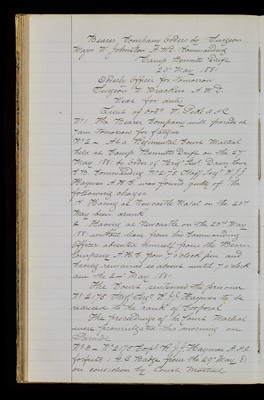 Bearer Company Orders by Surgeon
Major W. Johnston A.M.D. Commanding
Camp Bennetts Drift
25 May 1881
Orderly Officer for Tomorrow
Surgeon W. Bracken A.M.D.
Next for duty
No 1 The Bearer Company will parade at
7 am Tomorrow for fatigue
No 2 At a Regimental Court Martial
held at Camp Bennetts Drift on the 24
May 1881 by order of
Commanding No 2175 Staff Sergt W.J.J.
Haymon A.H.C. was found guilty of the
following charges
1 Having at Newcastle Natal on the 20th
May been drunk
2 Having at Newcastle on the 20th May
1881 without leave from his Commanding
Officer absented himself from the Bearer
Company A.H.C. from 7 o'clock pm and
having remained so absent until 7 o'clock
am the 21st May 1881
The Court sentenced the prisoner
No 2175 Staff Sergt W.J.J. Haymon to be
reduced to the rank of Corporal
The proceedings of the Court Martial
were promulgated this morning on
Parade
No 3 No 2175 Corpl W.J.J. Haymon A.H.C.
forfeits 1 G.C. Badge from the 25th May 81
on conviction by Court Martial